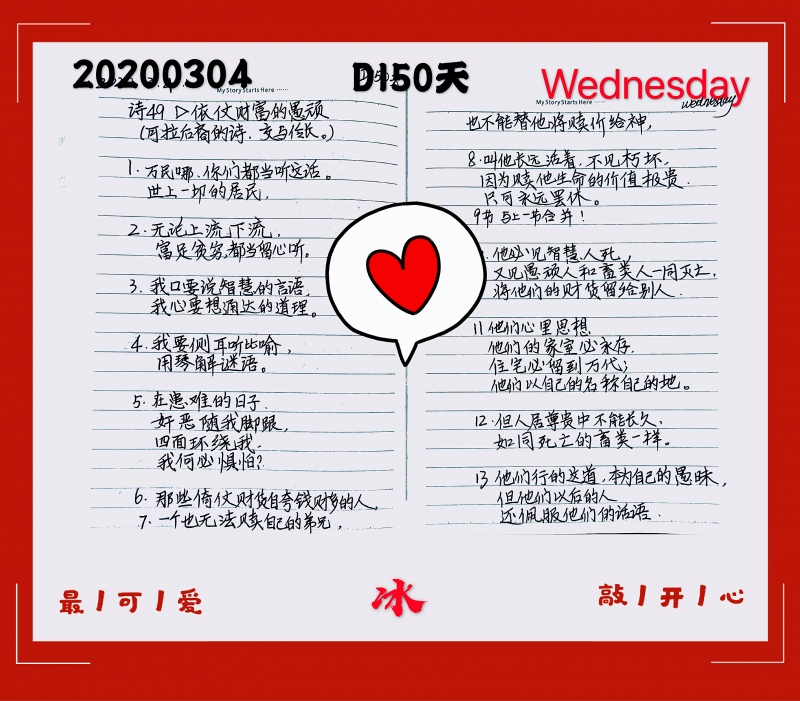 20200304
D150天
Wednesday
My Story Starts Here ······
诗49 ▷依仗财富的愚顽
(可拉后裔的诗.交与伶长。)
1. 万民哪、你们都当听这话。
世上一切的居民,
2. 无论上流下流,
富足贫穷,都当留心听。
3. 我口要说智慧的言语,
我心要想通达的道理。
4. 我要侧耳听比喻,
用琴解谜语。
5. 在患难的日子.
奸恶随我脚跟,
四面环绕我.
我何必惧怕?
6. 那些倚仗财货自夸钱财多的人,
7. 一个也无法赎自己的弟兄,
My Story Starts Here ······
wednesday
也不能替他将赎价给神,
8. 叫他长远活着,不见朽坏,
因为赎他生命的价值极贵.
只可永远罢休。
9节与上一节合并!
他必见智慧人死,
又见愚顽人和畜类人一同灭亡,
将他们的财货留给别人.
11 他们心里思想,
他们的家室必永存.
住宅必留到万代;
他们以自己的名称自己的地。
12. 但人居尊贵中不能长久,
如同死亡的畜类一样。
13 他们行的这道,本为自己的愚昧,
但他们以后的人
还佩服他们的话语.
最丨可丨爱
冰
敲丨开丨心